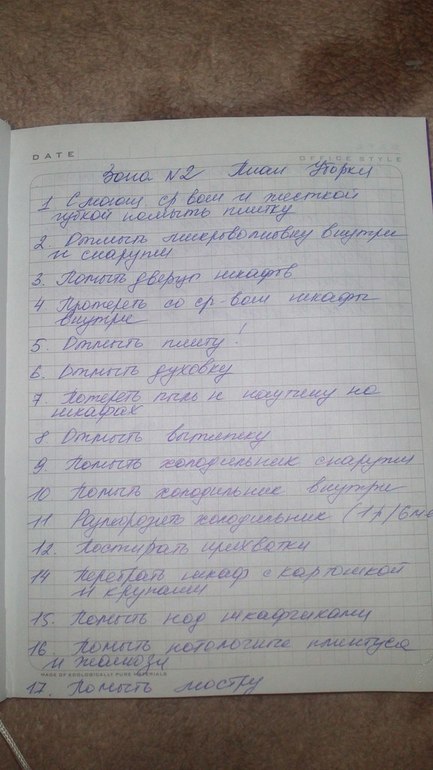 DATE
OFFICE STYLE
Зона N2 План Уборки
1 С моющ ср-вом и жесткой
губкой помыть плитку
2. Отмыть микроволновку внутри
и снаружи
3. Помыть дверцы шкафов
4 Протереть со ср-вом шкафы
внутри
5. Отмыть плиту!
6. Отмыть духовку
7 Потереть пыль и паутину на
шкафах
8 Отмыть вытяжку
9. Помыть холодильник снаружи
10 Помыть холодильник внутри
11 Разморозить холодильник (1р/6ме
12. Постирать прихватки
14 Перебрать шкаф с картошкой
и крупами
15. Помыть над шкафчиками
16. Помыть потолочные плинтуса
и жалюзи
MADE OF ECOLOGICALLY PURE MATERIALS
17. Помыть люстру